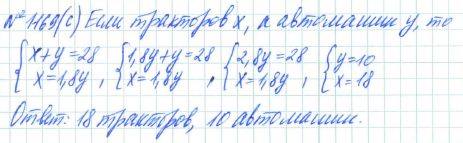 № 1169(с) Если тракторов x, а автомашин y, то
{x+y=28 {1,8y+y=28 {2,8y=28 {y=10
{x=1,8y, {x=1,8y, {x=1,8y, {x=18
Ответ: 18 тракторов, 10 автомашин.